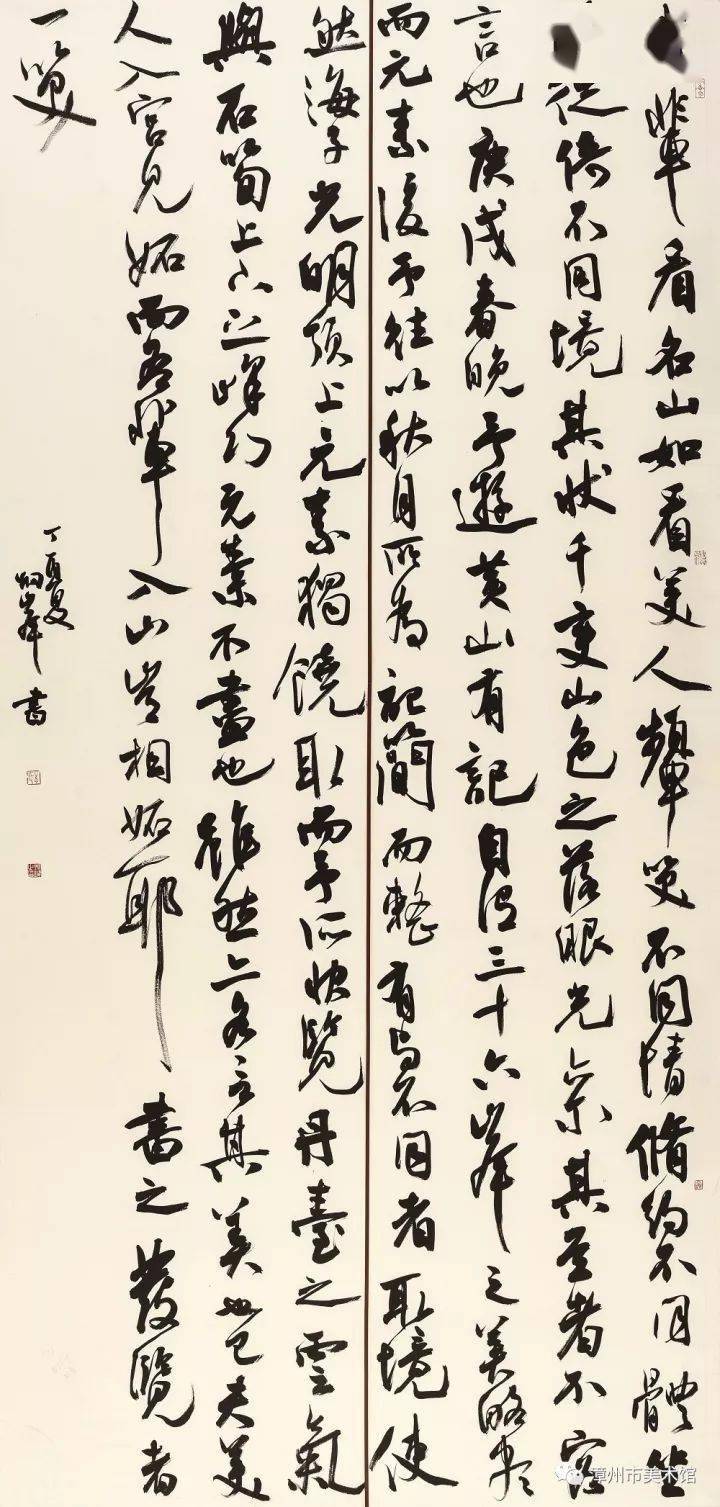 輩看名山如看美人顰笑不同情脩約不同體坐
徙倚不同境其狀千變山色之落眼光亦爾其至者不容
言也庚戌春晚予遊黃山有記自謂三十六峯之美略盡
而元素後予往以秋月所為記簡而整有與不同者取境使
然海子光明頂上元素獨饒取而予所快覽丹臺之雲氣
與石筍上下之峰巧元素不盡也雖然亦各言其美也已夫美
人入宮見妬而吾輩入山豈相妬耶書之發覽者
一笑
丁酉夏
炯峯書
漳州市美术馆